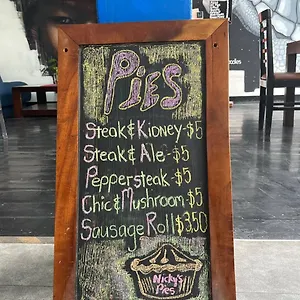 Pies
Steak & Kidney - $5
Steak & Ale - $5
Peppersteak - $5
Chic & Mushroom $5
Sausage Roll $3.50
Nicky's
Pies